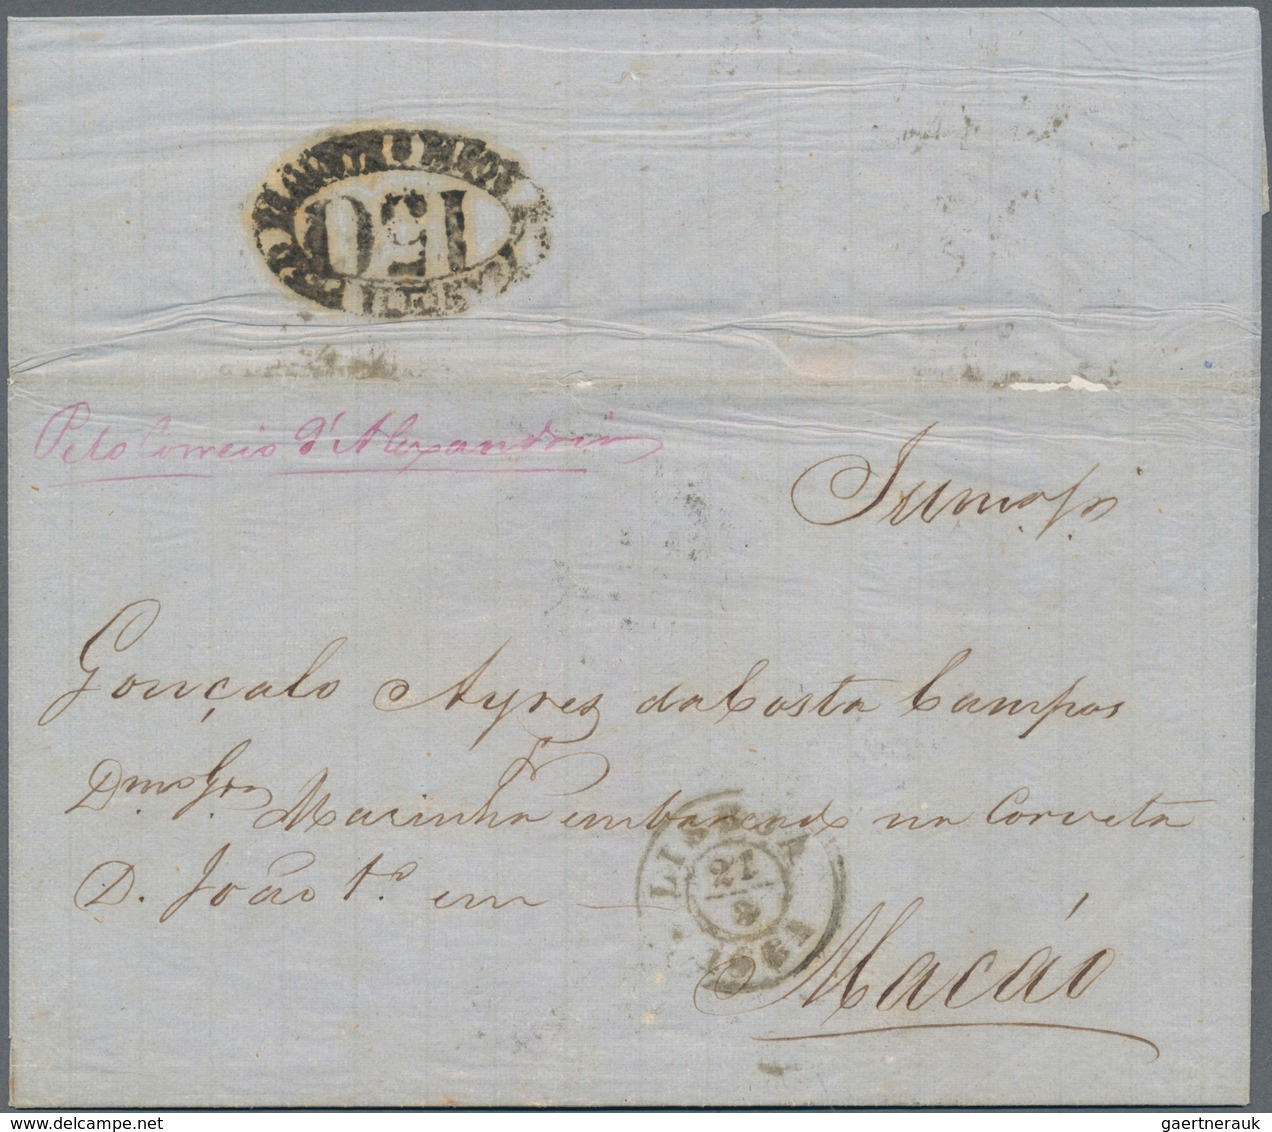 150
Pelo Correio d'Alexandria
Gonçalo Ayres da Costa Campos
Dmo. Gda Marinha embarcado na Corveta
D. João 1º em
LISBOA
27
8
1861
Macáo
gaertnerauk